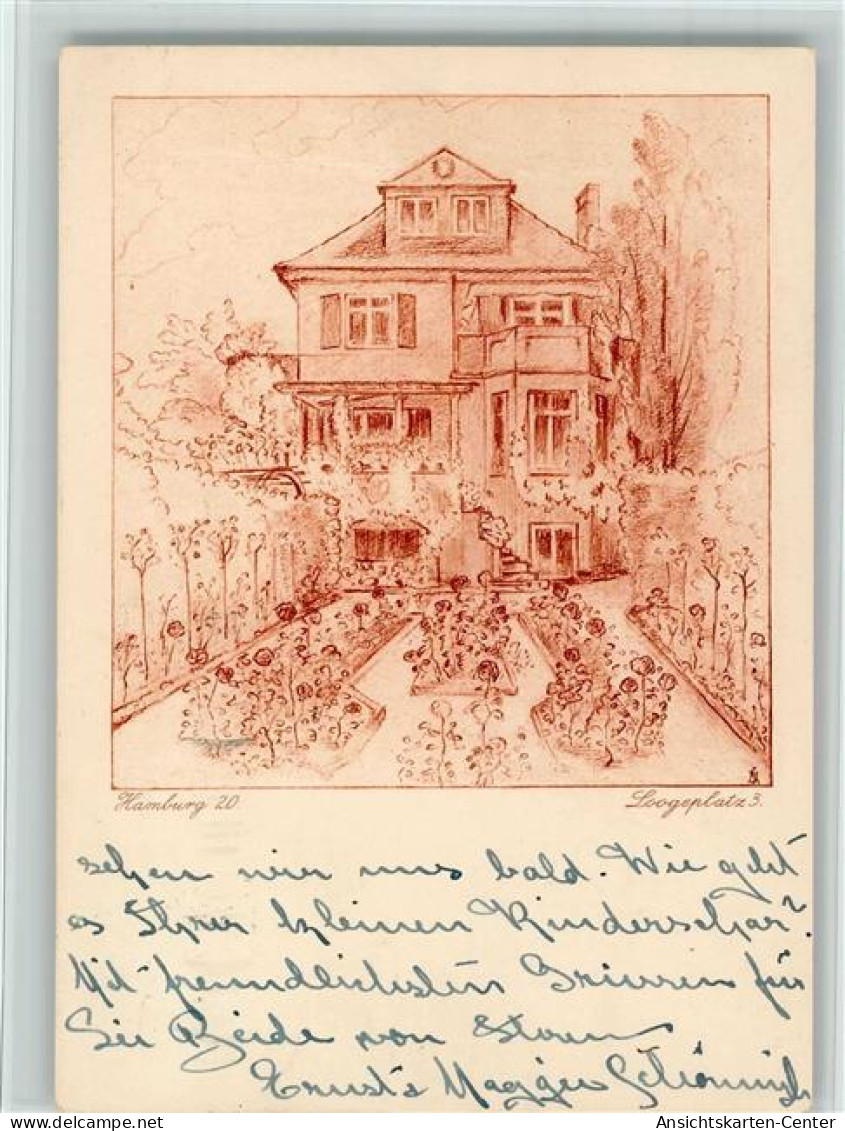 Hamburg 20. Loogeplatz 3.
sehen wir uns bald. Wie geht
es Ihrer kleinen Kinderschar?
Mit freundlichsten Grüssen für
Sie Beide von
Ernst &
Ansichtskarten-Center